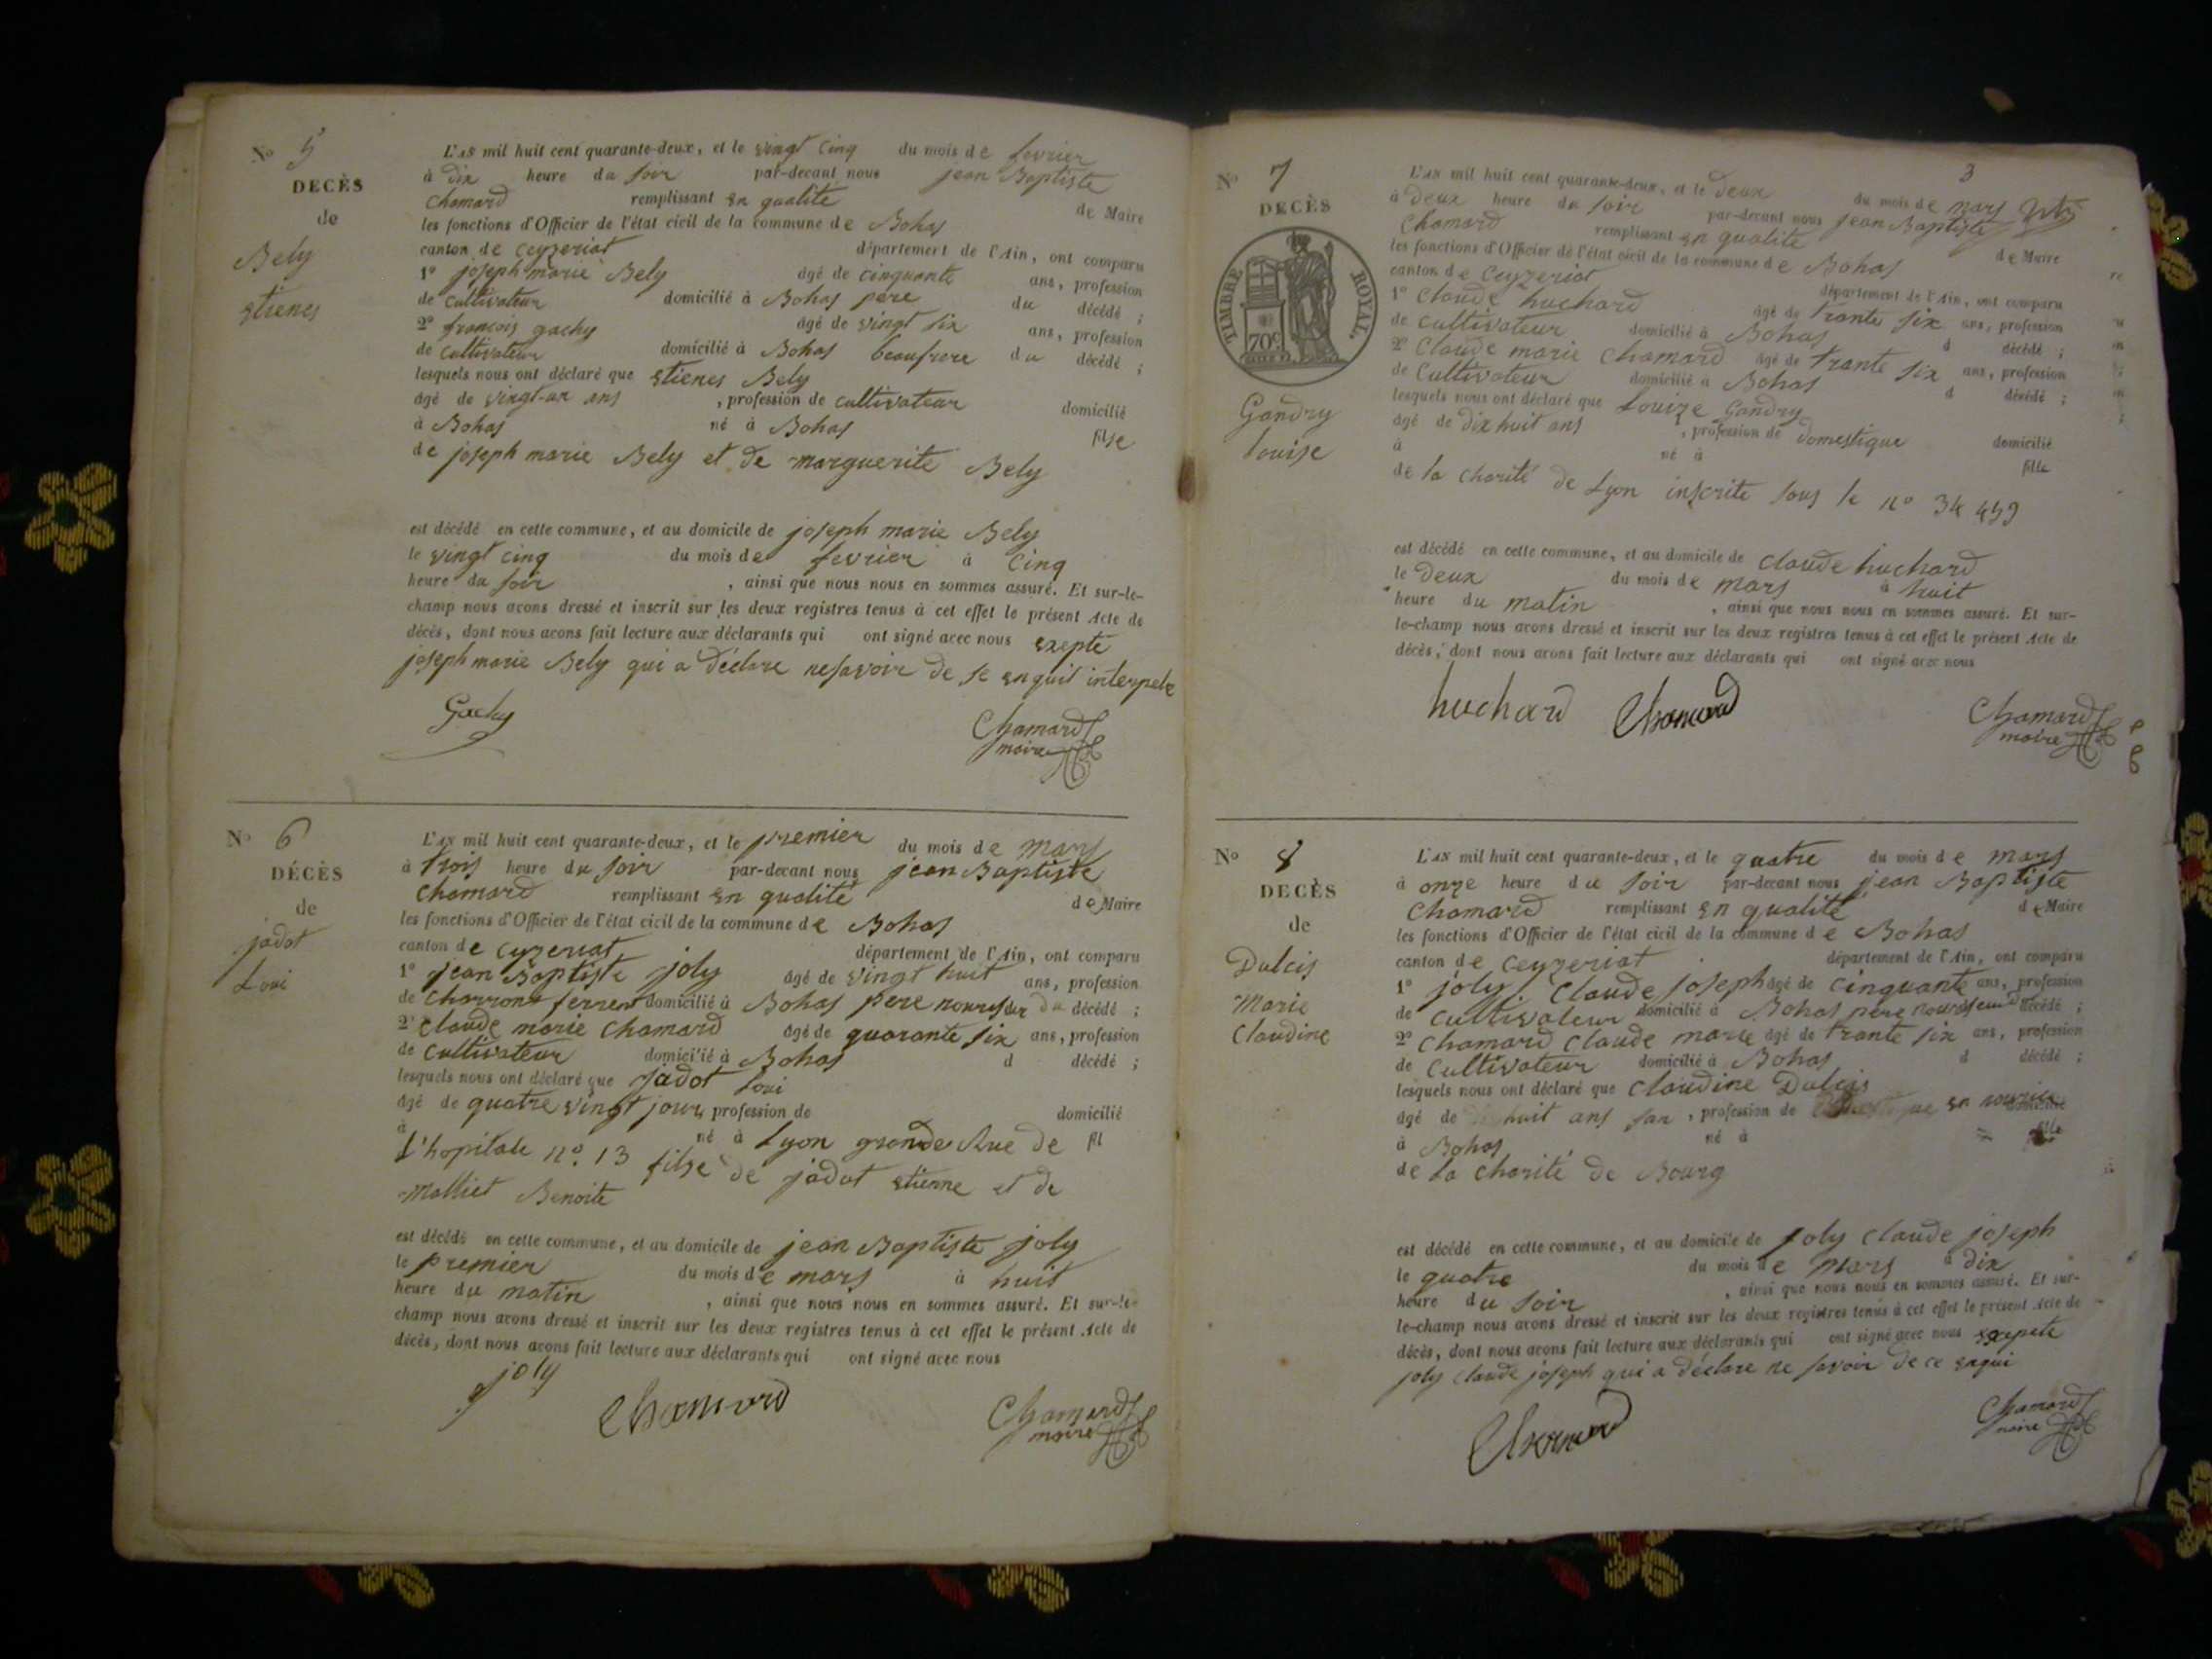 No 5
DECÈS
de
Bely
Stienes
L'AN mil huit cent quarante-deux, et le vingt cinq du mois de fevrier
à dix heure du soir par-devant nous jean Baptiste
Chamard remplissant en qualité de Maire
les fonctions d'Officier de l'état civil de la commune de Bohas
canton de Ceyzeriat département de l'Ain, ont comparu
1° joseph marie Bely âgé de cinquante ans, profession
de cultivateur domicilié à Bohas père du décédé ;
2° francois gachy âgé de vingt six ans, profession
de cultivateur domicilié à Bohas beaufrere du décédé ;
lesquels nous ont déclaré que Stienes Bely
âgé de vingt-un ans , profession de cultivateur domicilié
à Bohas né à Bohas filse
de joseph marie Bely et de marguerite Bely
est décédé en cette commune, et au domicile de joseph marie Bely
le vingt cinq du mois de fevrier à cinq
heure du soir , ainsi que nous nous en sommes assuré. Et sur-le-
champ nous avons dressé et inscrit sur les deux registres tenus à cet effet le présent Acte de
décès, dont nous avons fait lecture aux déclarants qui ont signé avec nous exepte
joseph marie Bely qui a déclare ne savoir de se enquit interpele
Gachy
Chamard
maire
No 6
DÉCÈS
de
jadot
Loui
L'AN mil huit cent quarante-deux, et le premier du mois de mars
à trois heure du soir par-devant nous jean Baptiste
Chamard remplissant en qualité de Maire
les fonctions d'Officier de l'état civil de la commune de Bohas
canton de cyzeriat département de l'Ain, ont comparu
1° jean Baptiste joly âgé de vingt huit ans, profession
de charrons ferrent domicilié à Bohas pere nourissier du décédé ;
2° claude marie chamard âgé de quarante six ans, profession
de cultivateur domicilié à Bohas d décédé ;
lesquels nous ont déclaré que jadot Loui
âgé de quatre vingt jour, profession de domicilié
à né à Lyon grande Rue de fil
l'hopitale n° 13 filse de jadot etienne et de
Malliet Benoite
est décédé en cette commune, et au domicile de jean Baptiste joly
le premier du mois de mars à huit
heure du matin , ainsi que nous nous en sommes assuré. Et sur-le-
champ nous avons dressé et inscrit sur les deux registres tenus à cet effet le présent Acte de
décès, dont nous avons fait lecture aux déclarants qui ont signé avec nous
joly
Chamard
Chamard
maire
3
No 7
DECÈS
TIMBRE ROYAL.
70c
Gandry
louise
L'AN mil huit cent quarante-deux, et le deux du mois de mars
à deux heure du soir par-devant nous jean Baptiste
Chamard remplissant en qualité de Maire
les fonctions d'Officier de l'état civil de la commune de Bohas
canton de Ceyzeriat département de l'Ain, ont comparu
1° Claude huchard âgé de trante six ans, profession
de cultivateur domicilié à Bohas d décédé ;
2° Claude marie Chamard âgé de trante six ans, profession
de Cultivateur domicilié à Bohas d décédé ;
lesquels nous ont déclaré que Louize Gandry
âgé de dix huit ans , profession de domestique domicilié
à né à fille
de la charité de Lyon inscrite sous le n° 34 459
est décédé en cette commune, et au domicile de claude huchard
le deux du mois de mars à huit
heure du matin , ainsi que nous nous en sommes assuré. Et sur-
le-champ nous avons dressé et inscrit sur les deux registres tenus à cet effet le présent Acte de
décès, dont nous avons fait lecture aux déclarants qui ont signé avec nous
huchard Chamard
Chamard
maire
No 8
DECÈS
de
Dulcis
Marie
Claudine
L'AN mil huit cent quarante-deux, et le quatre du mois de mars
à onze heure du soir par-devant nous jean Baptiste
Chamard remplissant en qualité de Maire
les fonctions d'Officier de l'état civil de la commune de Bohas
canton de Ceyzeriat département de l'Ain, ont comparu
1° joly Claude joseph âgé de cinquante ans, profession
de cultivateur domicilié à Bohas père décédé ;
2° Chamard Claude marie âgé de trante six ans, profession
de Cultivateur domicilié à Bohas d décédé ;
lesquels nous ont déclaré que Claudine Dulcis
âgé de huit ans , profession de en domicilié
à Bohas né à fille
de La Charité de Bourg
est décédé en cette commune, et au domicile de joly claude joseph
le quatre du mois de mars à dix
heure du soir , ainsi que nous nous en sommes assuré. Et sur-
le-champ nous avons dressé et inscrit sur les deux registres tenus à cet effet le présent Acte de
décès, dont nous avons fait lecture aux déclarants qui ont signé avec nous exepete
joly claude joseph qui a déclare ne savoir de ce enqui
Chamard
Chamard
maire